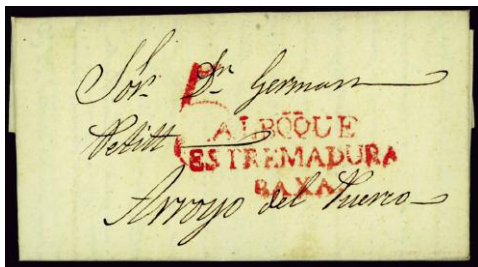 Sor. Dn. German
Petitt
ALBÕQUE
ESTREMADURA
BAXA
Arroyo del Puerco